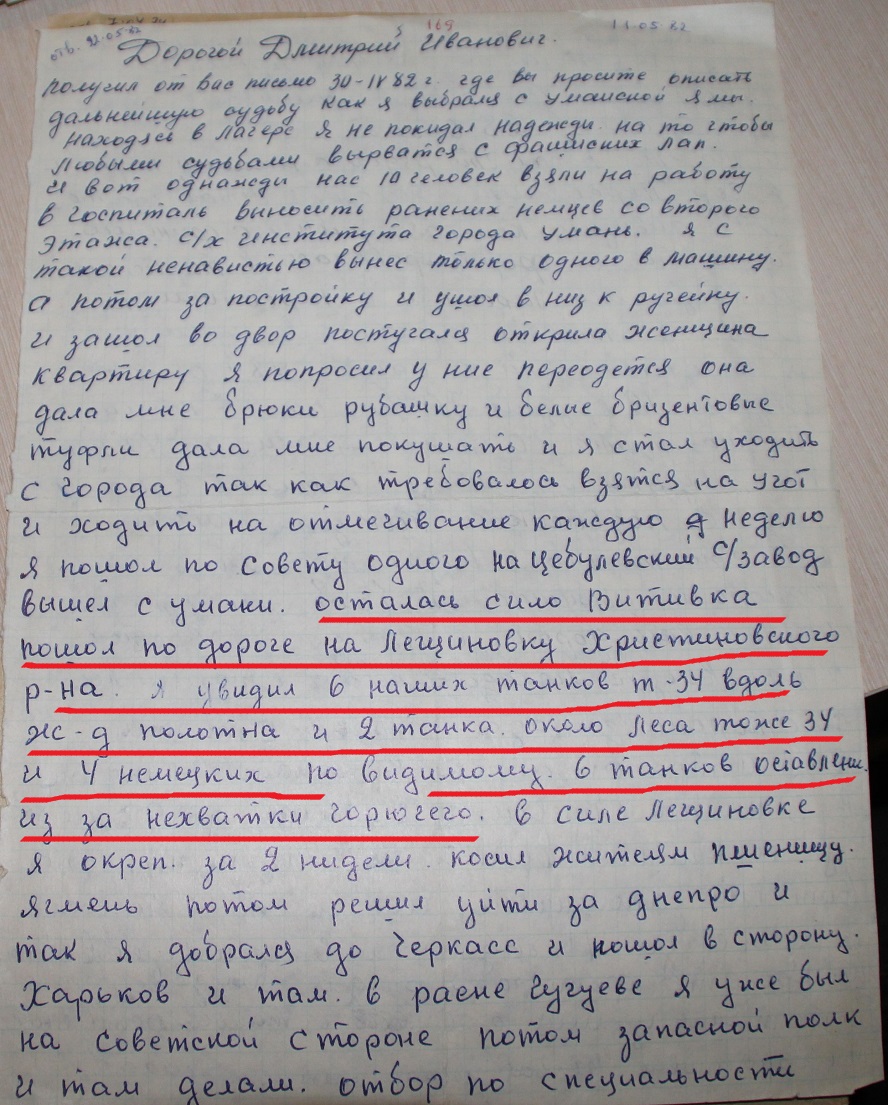 отв. 22.05.82
169
11.05.82
Дорогой Дмитрий Иванович.
получил от вас письмо 30-IV 82 г. где вы просите описать
дальнейшую судьбу как я выбрался с уманской ямы.
находясь в лагере я не покидал надежди. на то чтобы
любыми судьбами вырватся с фашиских лап.
и вот однажди нас 10 человек взяли на работу
в госпиталь выносить ранених немцев со второго
этажа. с/х института города умань. я с
такой ненавистью вынес только одного в машину.
а потом за постройку и ушол в низ к ручейку.
и зашол во двор постучался открила женщина
квартиру я попросил у ние переодется она
дала мне брюки рубашку и белые бризентовые
туфли дала мне покушать и я стал уходить
с города так как требовалось взятся на учот
и ходить на отмечивание каждую неделю
я пошол по совету одного на Цебулевский с/завод
вышел с умани. осталась сило Витивка
пошол по дороге на Легщиновку Христиновского
р-на. я увидил 6 наших танков т-34 вдоль
ж-д полотна и 2 танка. около леса тоже 34
и 4 немецких по видимому. 6 танков оставлени.
из за нехватки горючего. в силе Легщиновке
я окреп. за 2 нидели. косил жителям пшеницу.
ячмень потом решил уйти за днепро и
так я добрался до Черкасс и пошол в сторону.
Харьков и там. в раене Чугуеве я уже был
на советской стороне потом запасной полк
и там делали. отбор по специальности